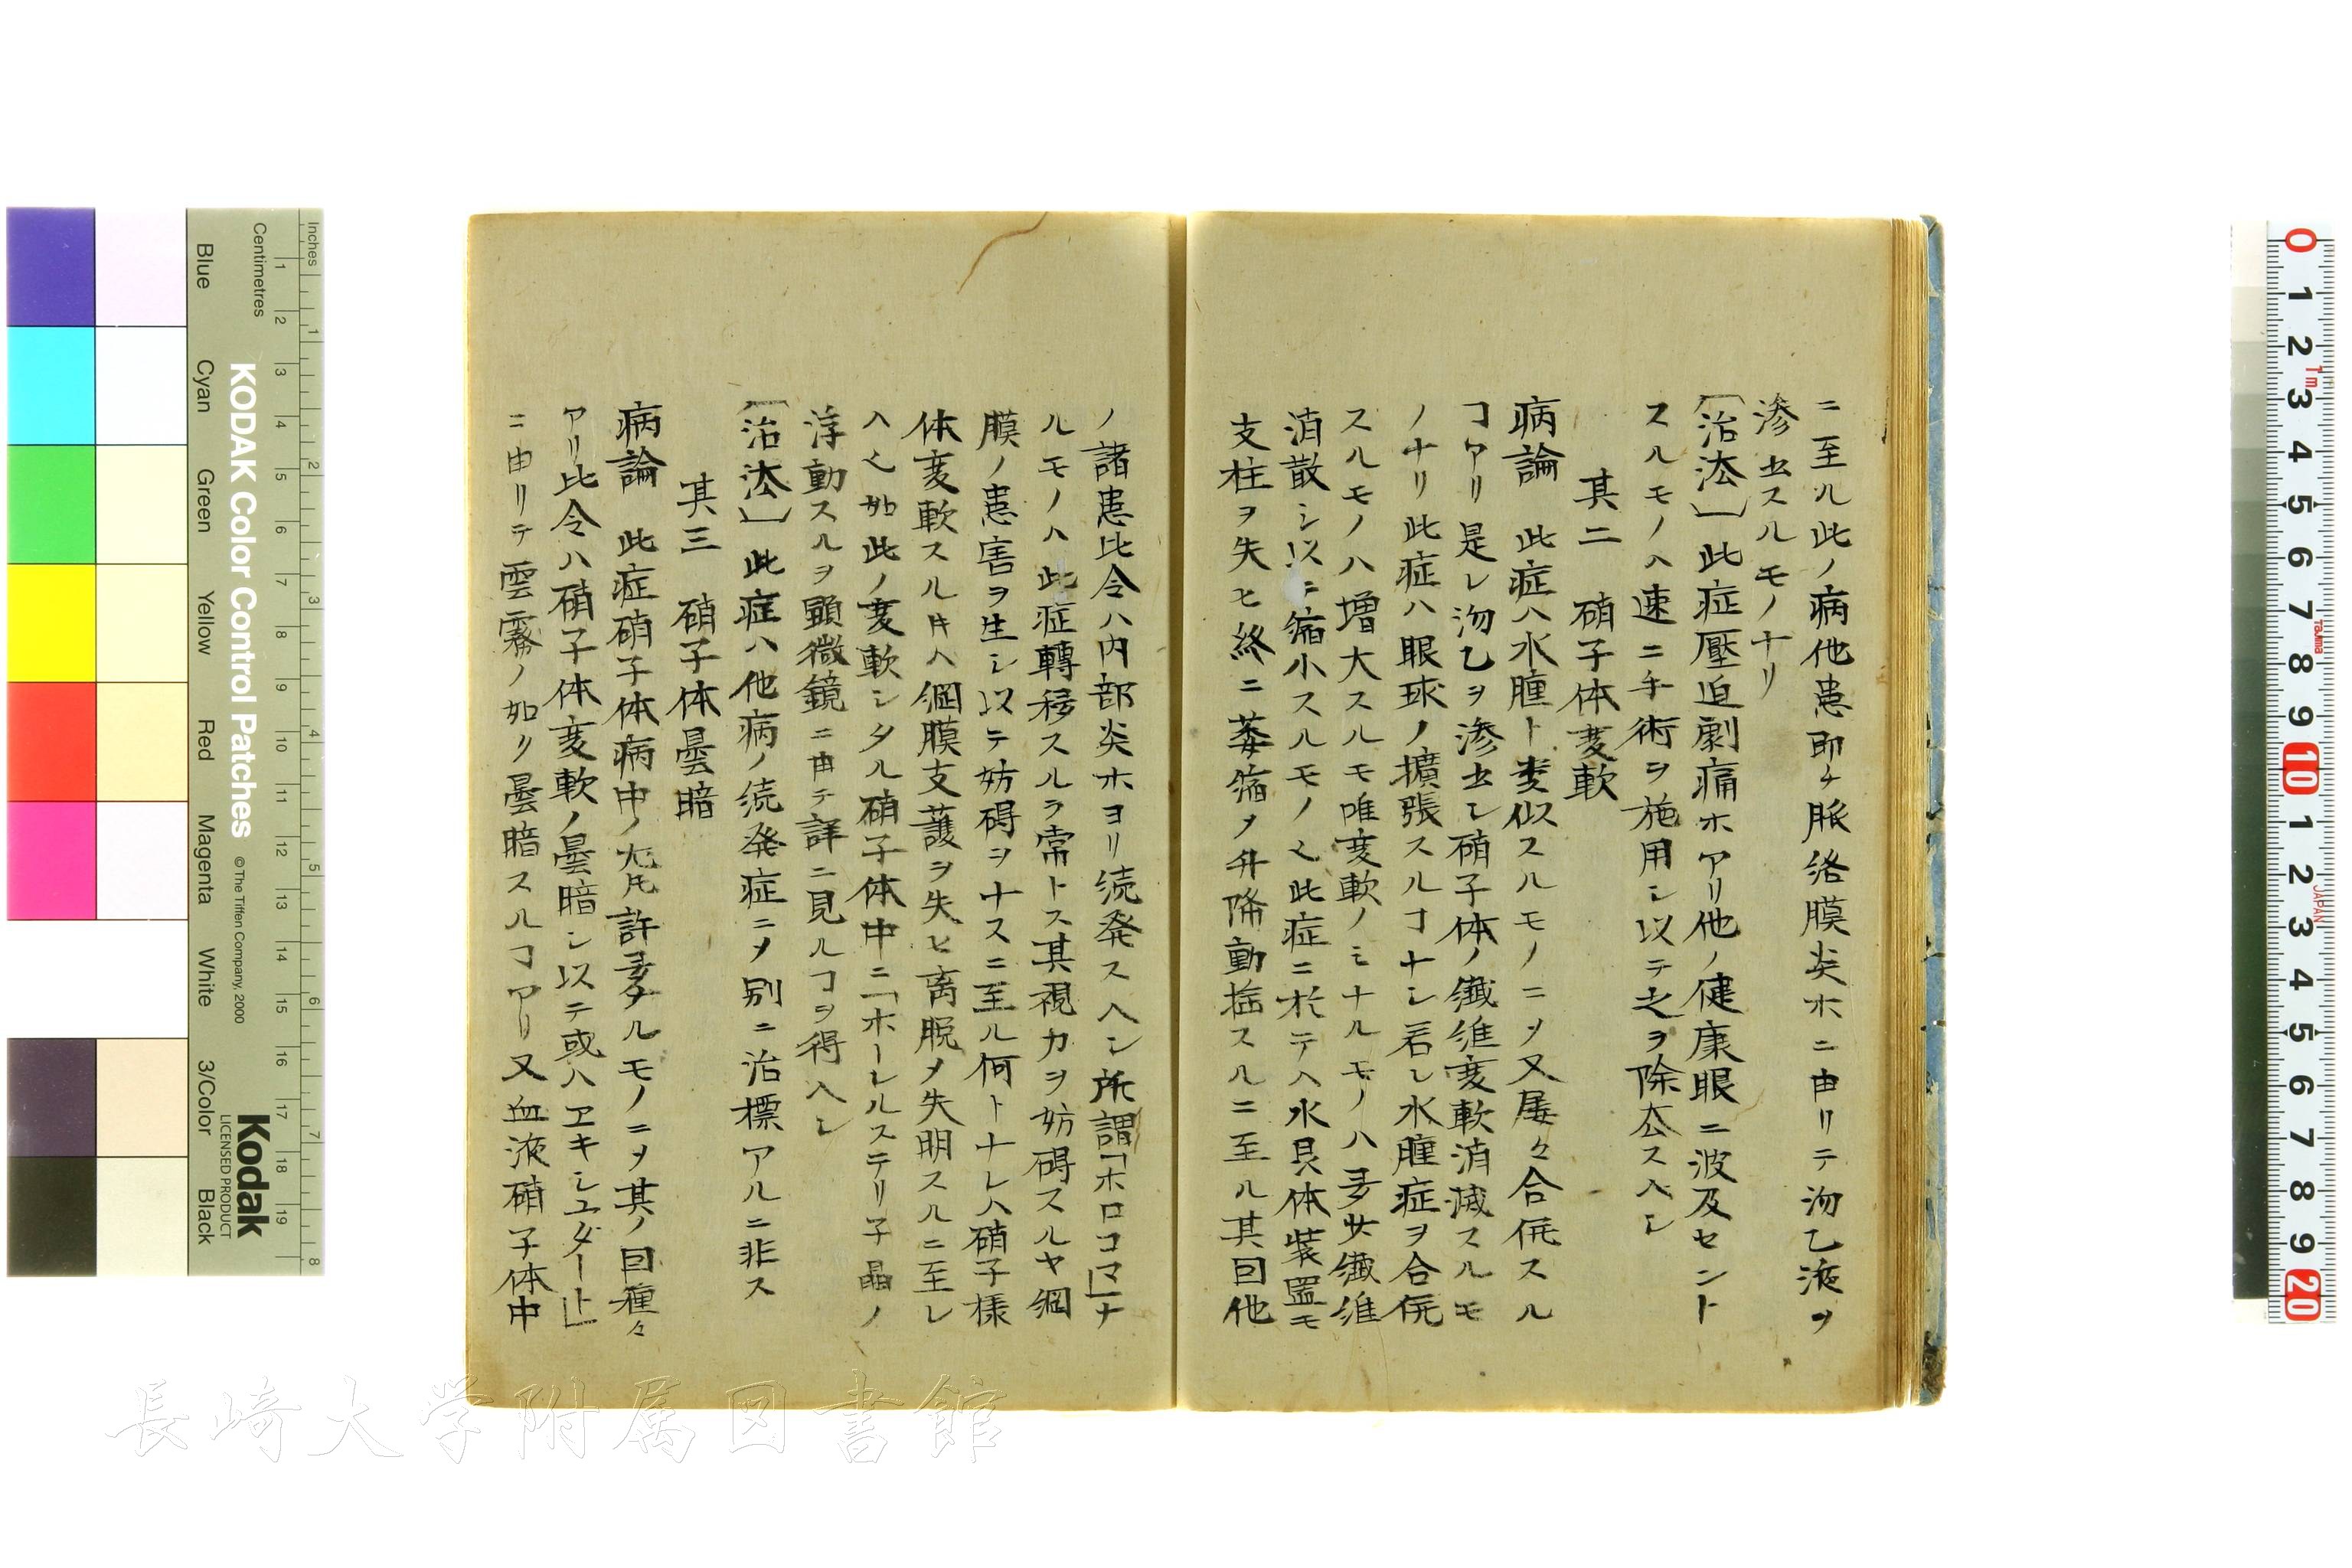 ニ至ル此ノ病他患即チ脈絡膜炎ホニ由リテ沕乙液ヲ
滲出スルモノナリ
〔治法〕此症壓迫劇痛ホアリ他ノ健康眼ニ波及セント
スルモノハ速ニ手術ヲ施用シ以テ之ヲ除去スヘシ
其二 硝子体変軟
病論 此症ハ水腫ト類似スルモノニメ又屡々合併スル
ヿアリ是レ沕乙ヲ滲出シ硝子体ノ纎維変軟消滅スルモ
ノナリ此症ハ眼球ノ擴張スルヿナシ若シ水腫症ヲ合併
スルモノハ増大スルモ唯変軟ノミナルモノハ多少纎維
消散シ以ニ縮小スルモノ〻此症ニ於テハ水晶体装置モ
支柱ヲ失ヒ終ニ萎縮メ升降動揺スルニ至ル其因他
ノ諸患比令ハ内部炎ホヨリ続発スヘシ所謂「ホロコマ」ナ
ルモノハ此症轉移スルヲ常トス其視力ヲ妨碍スルヤ網
膜ノ患害ヲ生シ以テ妨碍ヲナスニ至ル何トナレハ硝子様
体変軟スル片ハ網膜支護ヲ失ヒ离脱メ失明スルニ至レ
ハ〻如此ノ変軟シタル硝子体中ニ「ホーレルステリ子晶ノ
浮動スルヲ顕微鏡ニ由テ詳ニ見ルヿヲ得ヘシ
〔治法〕此症ハ他病ノ続発症ニメ別ニ治標アルニ非ス
其三 硝子体曇暗
病論 此症硝子体病中ノ尤許多ナルモノニメ其ノ因種々
アリ比令ハ硝子体変軟ノ曇暗シ以テ或ハヱキシユダート」
ニ由リテ雲霧ノ如ク曇暗スルヿアリ又血液硝子体中
Inches
Centimetres
KODAK Color Control Patches
©The Tiffen Company, 2000
Kodak
LICENSED PRODUCT
Blue Cyan Green Yellow Red Magenta White 3/Color Black
1 2 3 4 5 6 7 8
1 2 3 4 5 6 7 8 9 10 11 12 13 14 15 16 17 18 19
0 1 2 3 4 5 6 7 8 9 10 1 2 3 4 5 6 7 8 9 20
1m
Tajima
JAPAN
長崎大学附属図書館